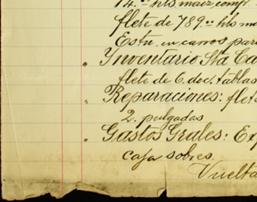 74.00 hls maiz comp.
flete de 789.00 hls me
Estn. en carros para
Inventario Sta Ca
flete de 6. doc. tablas
Reparaciones: flet
2. pulgadas
Gastos Grales: Ex
caja sobres.
Vuelta